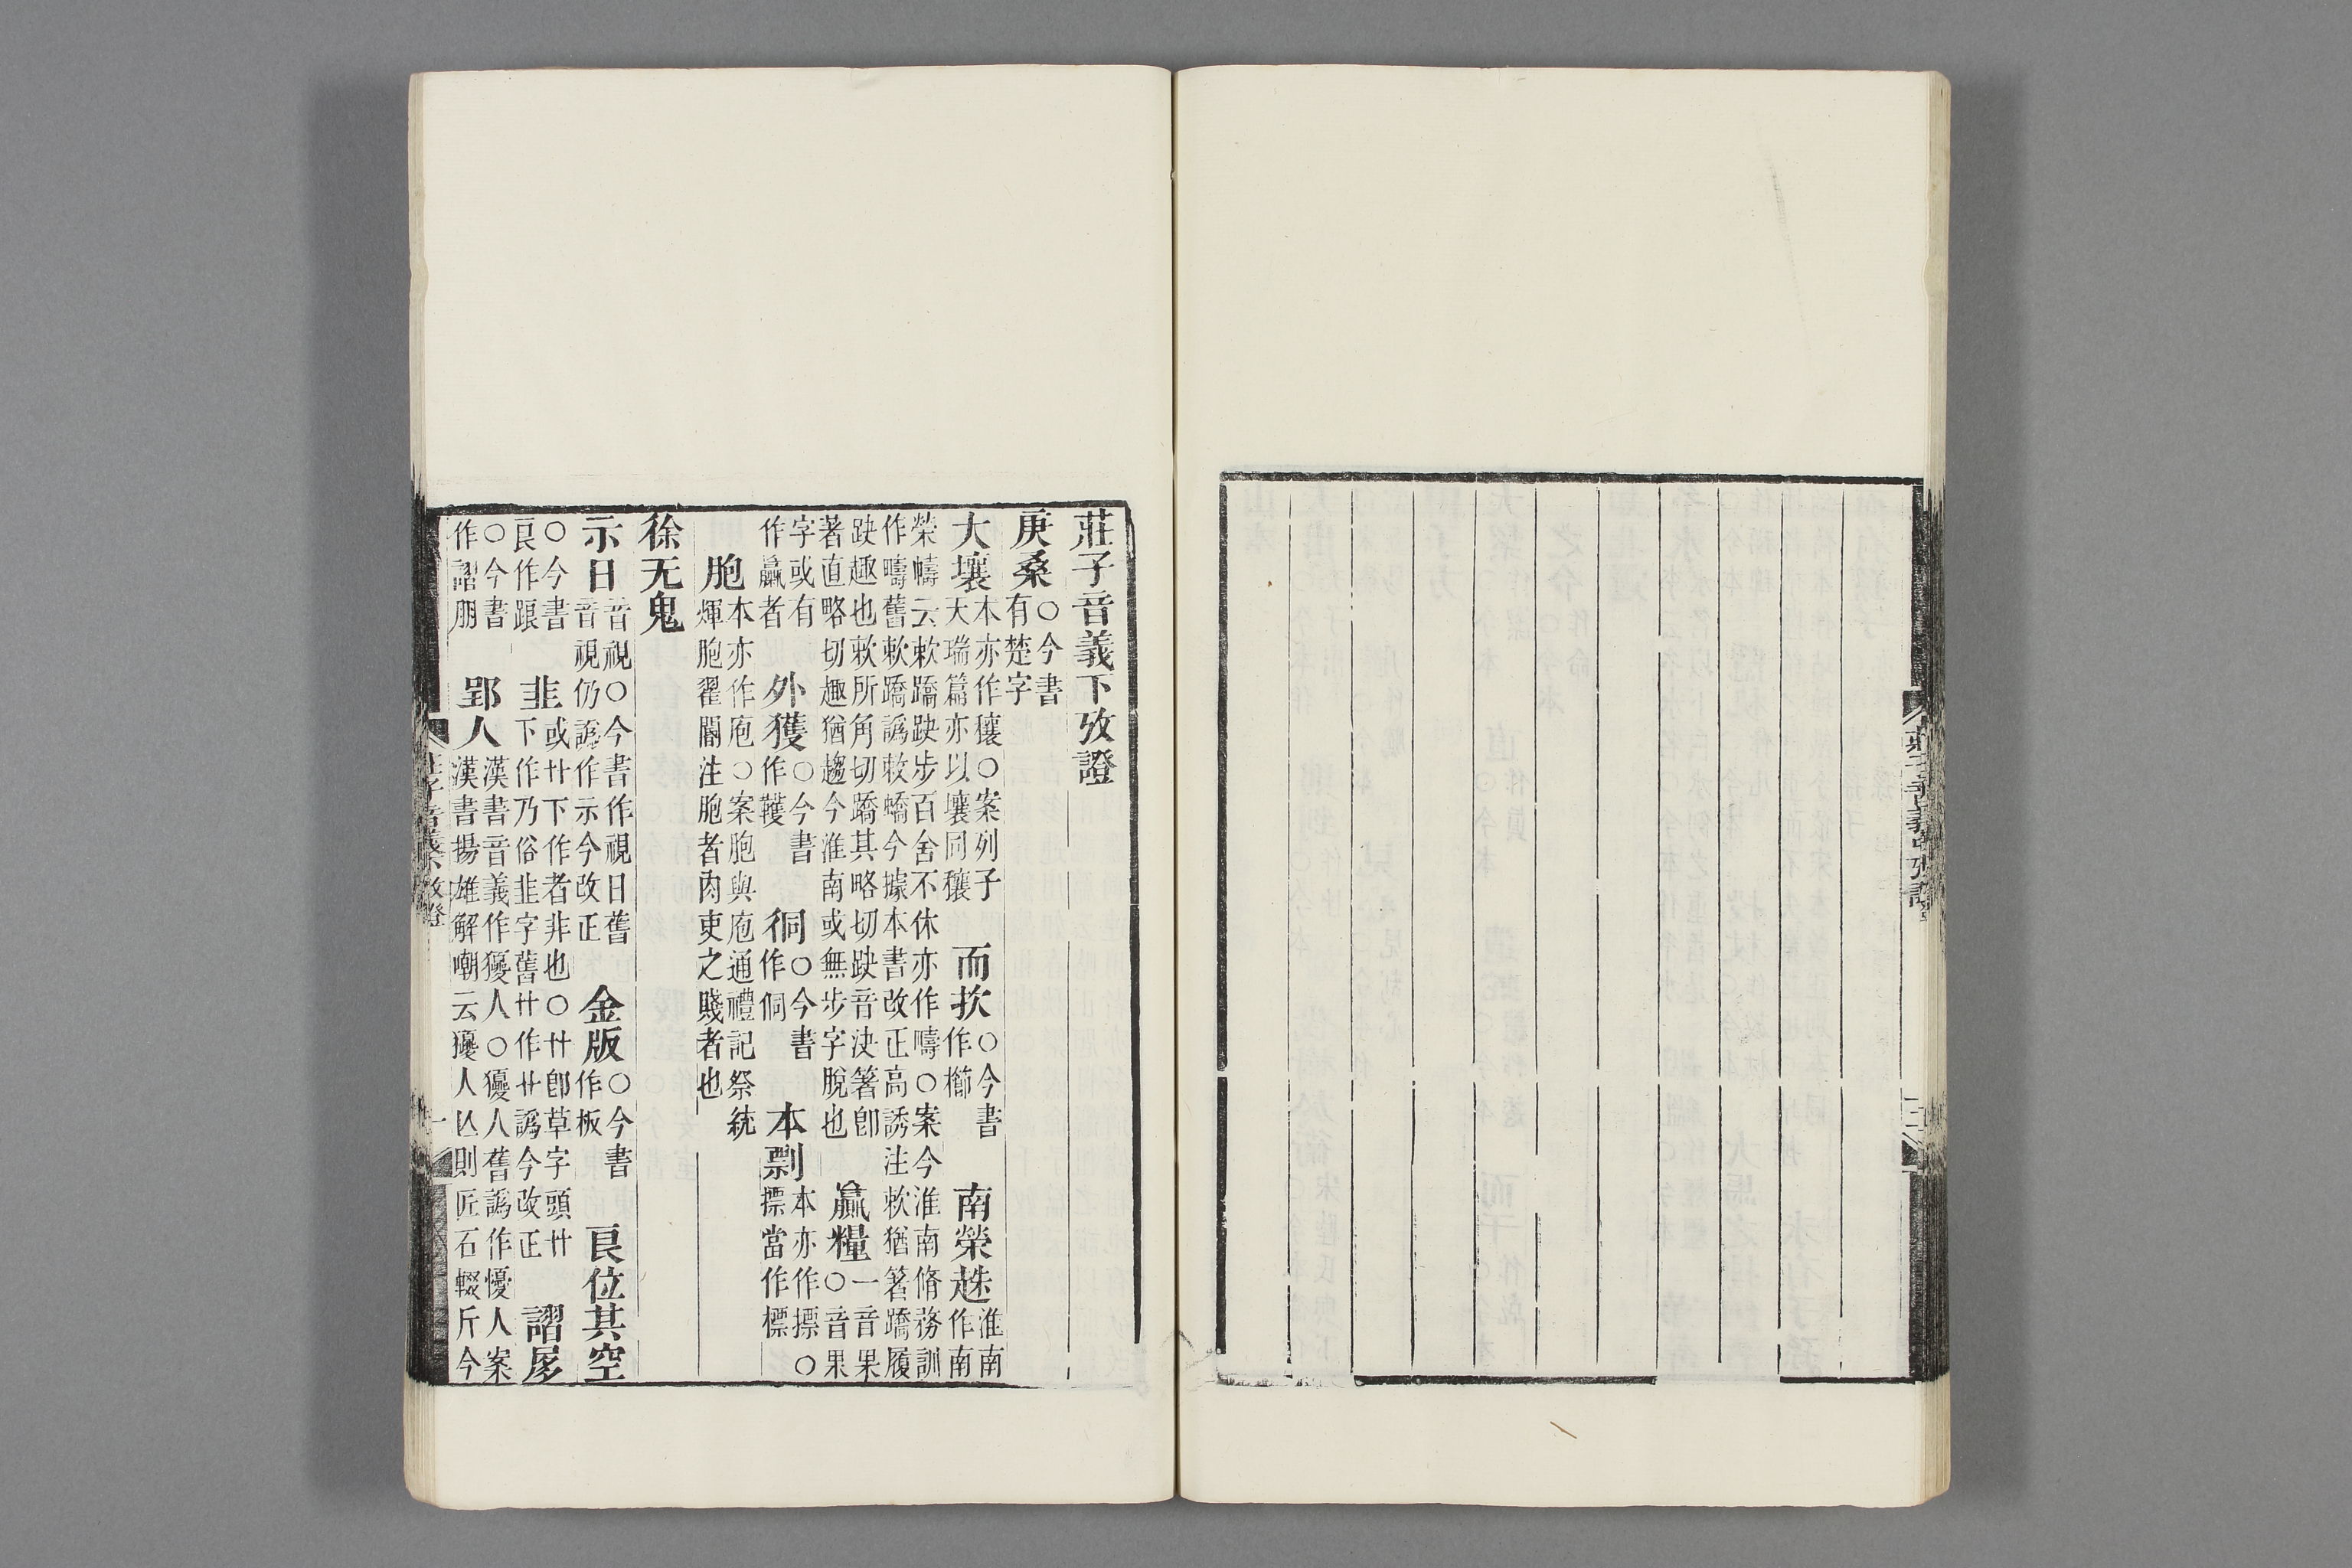 莊子音義中攷證
莊子音義下攷證
庚桑○今書有楚字
大壤本亦作穰○案列子天瑞篇亦以壤同穰 而扻○今書作櫛 南榮趎淮南作南
榮幬云欶蹻趹步百舍不休亦作疇○案今淮南脩務訓作疇舊欶蹻譌敕蟜今據本書改正高誘注欶猶箸蹻履
趹趣也欶所角切蹻其略切趹音決箸卽著直略切趣猶趨今淮南或無步字脫也 贏糧一音果○音果
字或有作羸者 外獲○今書作韄 㣚○今書作侗 本剽本亦作摽○摽當作標
胞本亦作庖○案胞與庖通禮記祭統煇胞翟閽注胞者肉吏之賤者也
徐无鬼
示日音視○今書作視日舊音視仍譌作示今改正 金版○今書作板 良位其空
○今書良作踉 韭或卄下作者非也○卄卽草字頭卄下作乃俗韭字舊卄作廾譌今改正 謵
○今書作謵朋 郢人漢書音義作獿人○獿人舊譌作懮人案漢書揚雄解嘲云獿人亡則匠石輟斤今
莊子音義下攷證 一